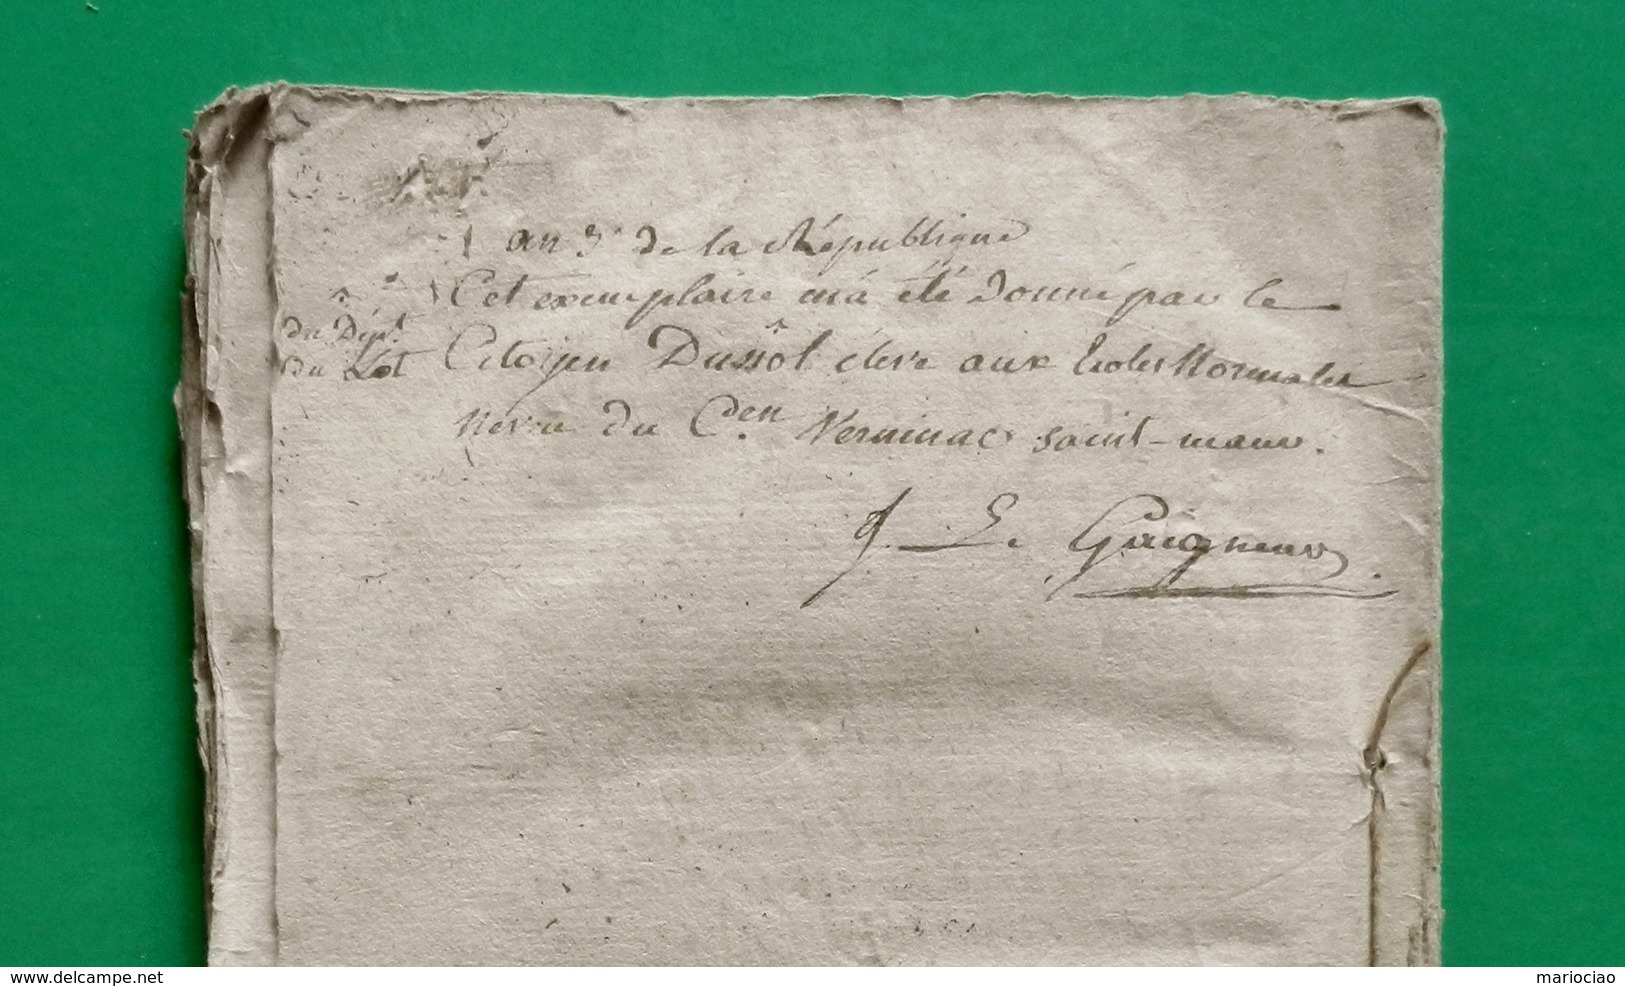 an 3e de la République
Cet exemplaire m'a été donné par le
du Dépt.
du Lot
Citoyen Dussol éleve aux Ecoles Normales
neveu du Cen Verninac saint-maur.
J. L. Gaigneur
delcampe.net
mariociao